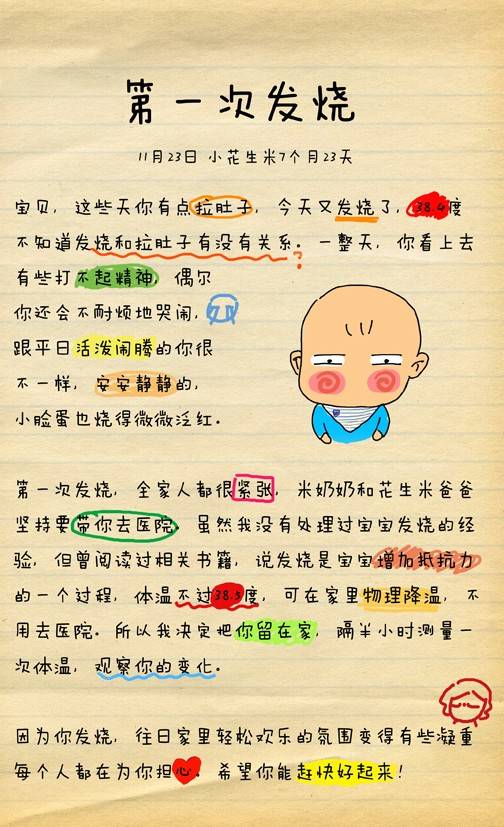 第一次发烧
11月23日 小花生米7个月23天
宝贝，这些天你有点拉肚子，今天又发烧了，38.4度
不知道发烧和拉肚子有没有关系。一整天，你看上去
?
有些打不起精神，偶尔
你还会不耐烦地哭闹，
跟平日活泼闹腾的你很
不一样，安安静静的，
小脸蛋也烧得微微泛红。
第一次发烧，全家人都很紧张，米奶奶和花生米爸爸
坚持要带你去医院，虽然我没有处理过宝宝发烧的经
验，但曾阅读过相关书籍，说发烧是宝宝增加抵抗力
的一个过程，体温不过38.5度，可在家里物理降温，不
用去医院。所以我决定把你留在家，隔半小时测量一
次体温，观察你的变化。
因为你发烧，往日家里轻松欢乐的氛围变得有些凝重
每个人都在为你担心。希望你能赶快好起来！